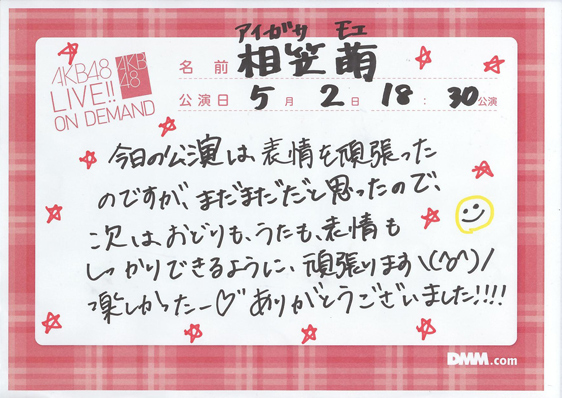 アイガサ モエ
AKB48
LIVE!!
ON DEMAND
AKB
48
名前 相笠 萌
公演日 5月2日 18:30公演
今日の公演は、表情を頑張った
のですが、まだまだだと思ったので、
次はおどりも、うたも、表情も
しっかりできるように、頑張ります\(^o^)/
楽しかったー♡ ありがとうございました!!!!
DMM.com